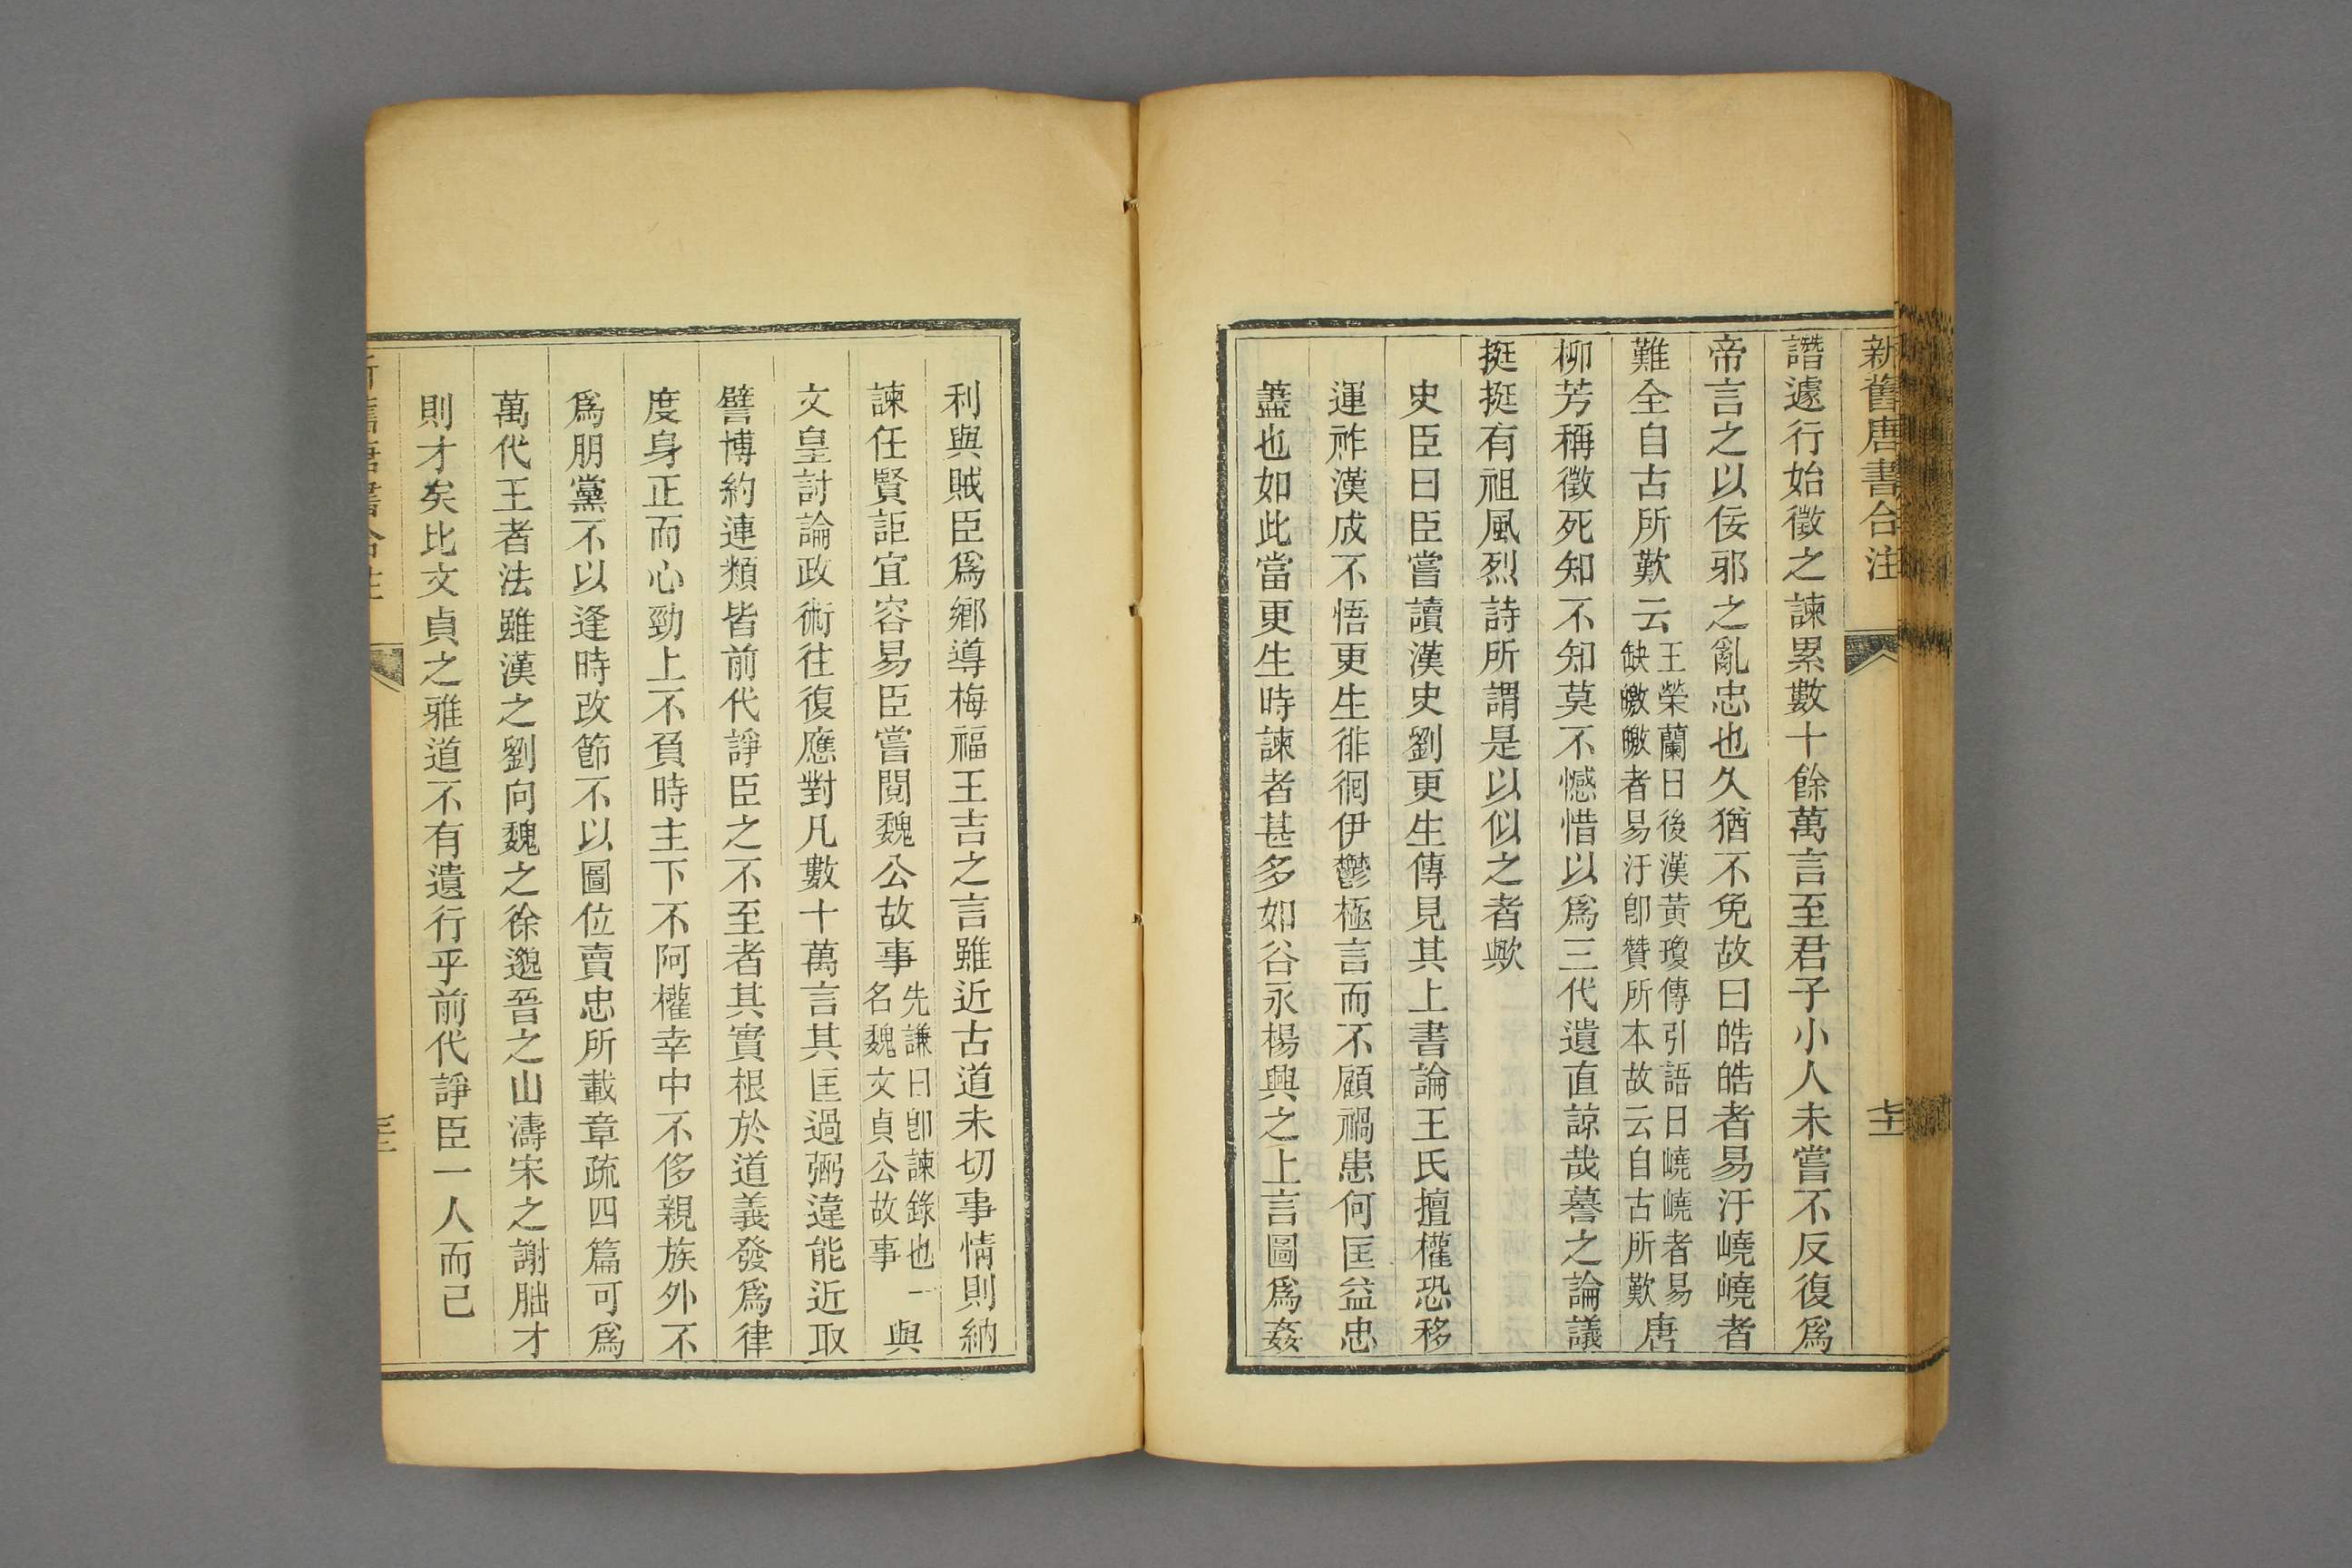 新舊唐書合注
譖遽行始徵之諫累數十餘萬言至君子小人未嘗不反復爲
帝言之以佞邪之亂忠也久猶不免故曰皓皓者易汙嶢嶢者
難全自古所歎云王榮蘭曰後漢黃瓊傳引語曰嶢嶢者易缺皦皦者易汙卽贊所本故云自古所歎唐
柳芳稱徵死知不知莫不憾惜以爲三代遺直諒哉謩之論議
挺挺有祖風烈詩所謂是以似之者歟
史臣曰臣嘗讀漢史劉更生傳見其上書論王氏擅權恐移
運祚漢成不悟更生徘徊伊鬱極言而不顧禍患何匡益忠
藎也如此當更生時諫者甚多如谷永楊興之上言圖爲姦
利與賊臣爲鄉導梅福王吉之言雖近古道未切事情則納
諫任賢詎宜容易臣嘗閱魏公故事先謙曰卽諫錄也一名魏文貞公故事與
文皇討論政術往復應對凡數十萬言其匡過弼違能近取
譬博約連類皆前代諍臣之不至者其實根於道義發爲律
度身正而心勁上不負時主下不阿權幸中不侈親族外不
爲朋黨不以逢時改節不以圖位賣忠所載章疏四篇可爲
萬代王者法雖漢之劉向魏之徐邈晉之山濤宋之謝朏才
則才矣比文貞之雅道不有遺行乎前代諍臣一人而已